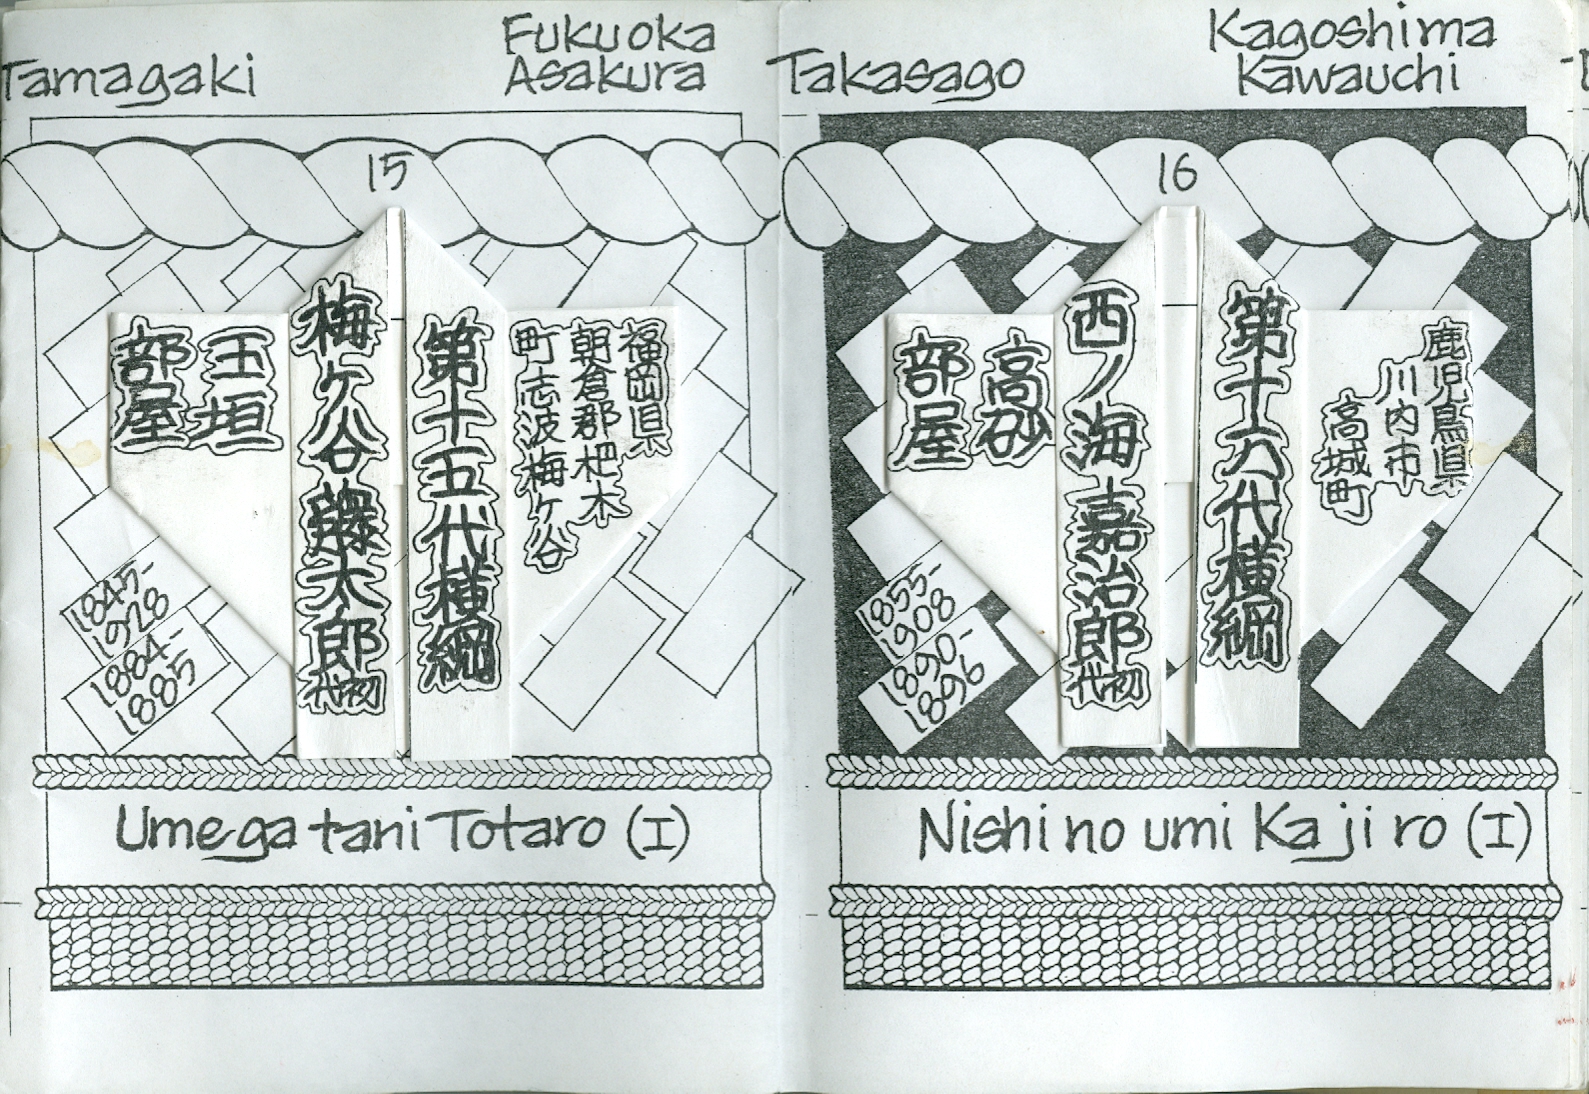 Tamagaki
Fukuoka
Asakura
15
福岡県
朝倉郡杷木
町志波梅ケ谷
第十五代横綱
梅ケ谷藤太郎
初代
玉垣
部屋
1845-
1928
1884-
1885
Umegatani Totaro (I)
Takasago
Kagoshima
Kawauchi
16
鹿児島県
川内市
高城町
第十六代横綱
西ノ海嘉治郎
初代
高砂
部屋
1855-
1908
1890-
1896
Nishi no umi Kajiro (I)